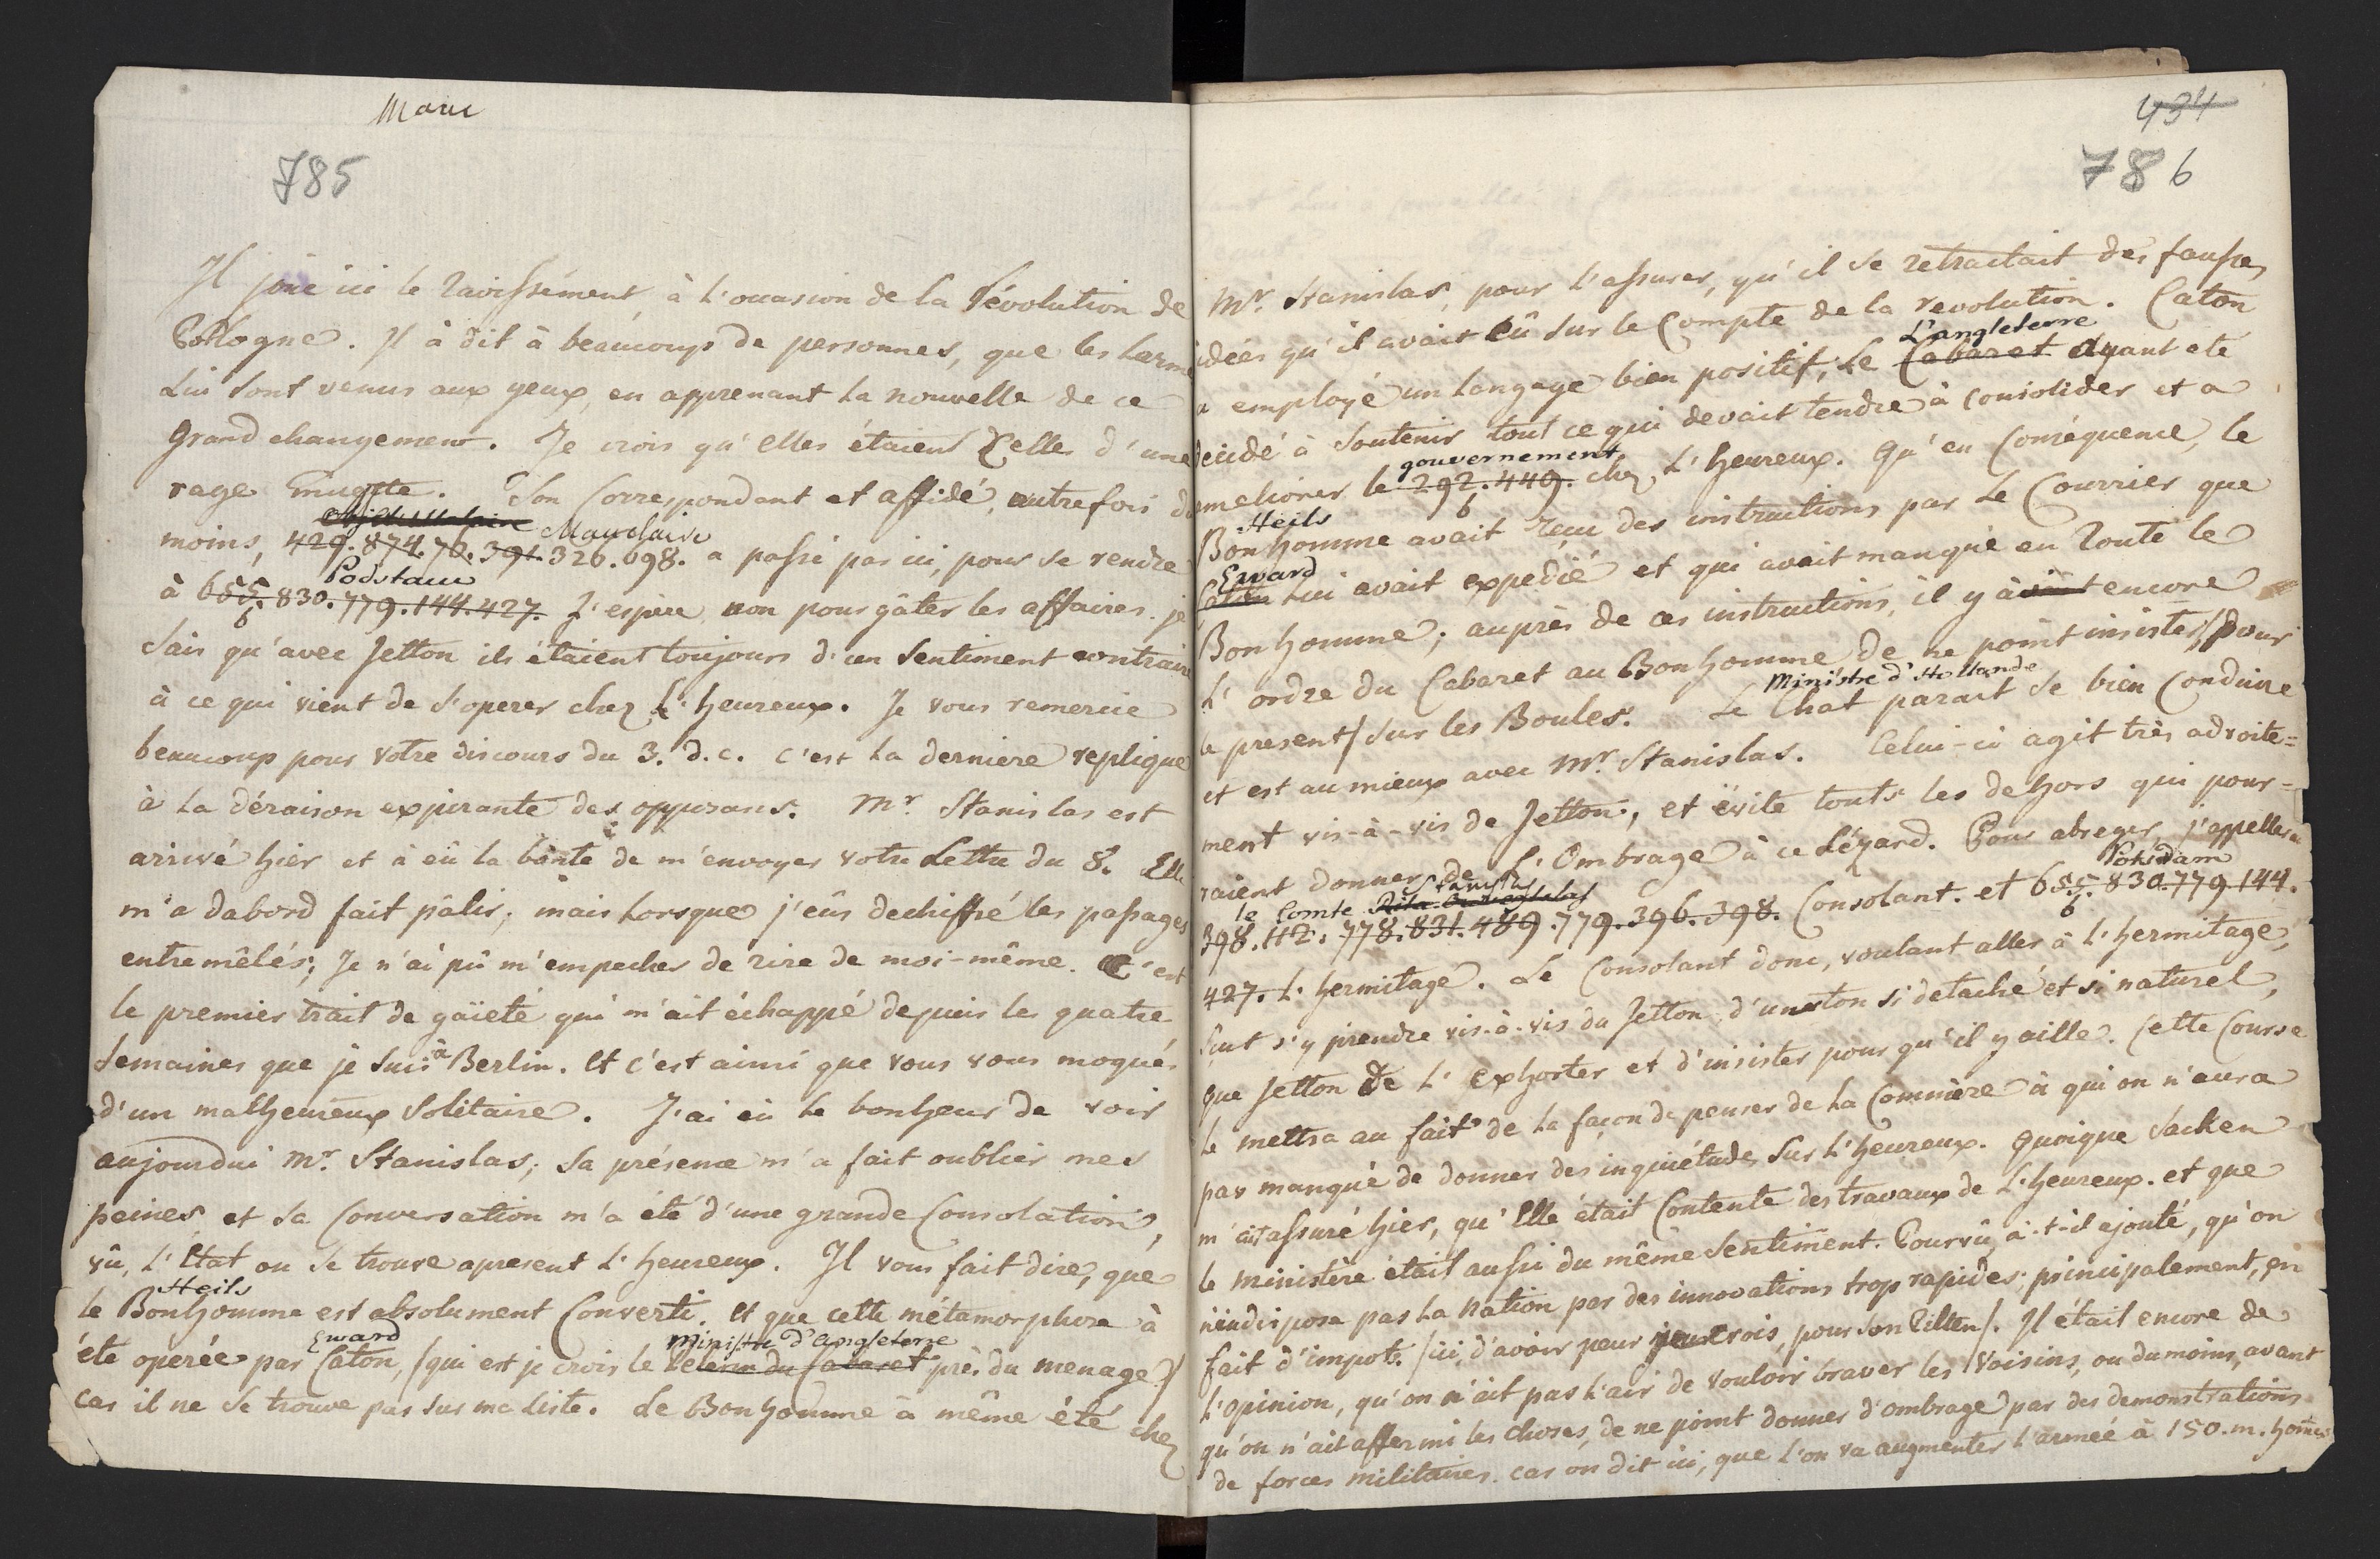 Marc
785
Il joue ici le ravissément à l'occasion de la révolution de
Pollogne. Il à dit à beaucoups de personnes, que les larm
lui sont venus aux yeux, en apprenant la nouvelle de ce
grand changement. Je crois qu'elles étaient celles d'une
rage muette. Son Correspondent et affidé, autrefois du
Mauclaire
moins, 429. 874. 70. 391. 326. 698. a passé par ici, pour se rendre
Podstam
à 655. 830. 779. 144. 427. J'espère non pour gâter les affaires. je
sais qu'avec Jetton ils étaient toujours d'un sentiment contraire
à ce qui vient de s'operer chez L'heureux. Je vous remercie
beaucoup pour votre discours du 3. d. c. c'est la derniere replique
à la déraison expirante des opposans. Mr. Stanislas est
arrivé hier et à eû la bonté de m'envoyer votre Lettre du 8. Elle
m'a dabord fait pâlir, mais lorsque j'eûs dechiffré les passages
entremêlés; Je n'ai pû m'empecher de rire de moi-même. C'est
le premier trait de gaïeté qui m'ait échappé depuis les quatre
semaines que je suis à Berlin. Et c'est ainsi que vous vous moqués
d'un malheureux solitaire. J'ai eû le bonheur de voir
aujourdui Mr. Stanislas; sa présence m'a fait oublier mes
peines et sa Conversation m'a été d'une grande Consolation,
vû, l'Etat ou se trouve apresent L'heureux. Il vous fait dire, que
Heils
le Bonhomme est absolument Converti. et que cette métamorphose à
Eward ministre d'Angleterre
été operée par Caton, /qui est je crois le Pelerin du Cabaret près du menage?/
car il ne se trouve pas sur ma liste. Le Bonhomme à même été chez
434
786
Mr. Stanislas, pour l'assurer, qu'il se retractait des fausses
idées qu'il avait eû sur le Compte de la revolution. Caton
L'angleterre
a employé un langage bien positif; Le Cabaret ayant eté
decidé à soutenir tout ce qui devait tendre à consolider et a
gouvernement
ameliorer le 292. 449. chez L'heureux. Qu'en Conséquence, le
Heils
Bonhomme avait reçu des instructions par le Courrier que
Eward
Caton lui avait expedié et qui avait manqué en route le
Bonhomme; auprès de ces instructions, il y avait encore
L'ordre du Cabaret au Bonhomme de ne point insister /pour
Ministre d'Hollande
le present/ sur les Boules. Le Chat parait se bien Conduire
et est au mieux avec Mr. Stanislas. Celui-ci agit très adroite=
ment vis-à-vis de Jetton, et évite touts les dehors qui pour=
raient donner de l'Ombrage à ce Lézard. Pour abreger, j'appellerai
le Comte Stanislas Potsdam
398. 112. 778. 831. 489. 779. 396. 398. Consolant. et 655. 830. 779. 144.
427. L'hermitage. Le Consolant donc, voulant aller à L'hermitage,
sut s'y prendre vis-à-vis du Jetton, d'un ton si detaché et si naturel,
que Jetton de L'exhorter et d'insister pour qu'il y aille. Cette Course
le mettra au fait de la façon de penser de la Commère à qui on n'aura
pas manqué de donner des inquiétudes sur L'heureux. Quoique Sacken
m'ait assuré hier, qu'Elle était Contente des travaux de L'heureux. et que
le ministère était aussi du même sentiment. Pourvû, à-t-il ajouté, qu'on
n'indispose pas la nation par des innovations trop rapides; principalement, en
fait d'impots. /ici, d'avoir peur je crois, pour son Pilten/. Il était encore de
l'opinion, qu'on n'ait pas l'air de vouloir braver les Voisins, ou du moins, avant
qu'on n'ait affermi les choses, de ne point donner d'ombrage par des demonstrations
de forces militaires. car on dit ici, que l'on va augmenter l'armée à 150. m. homes